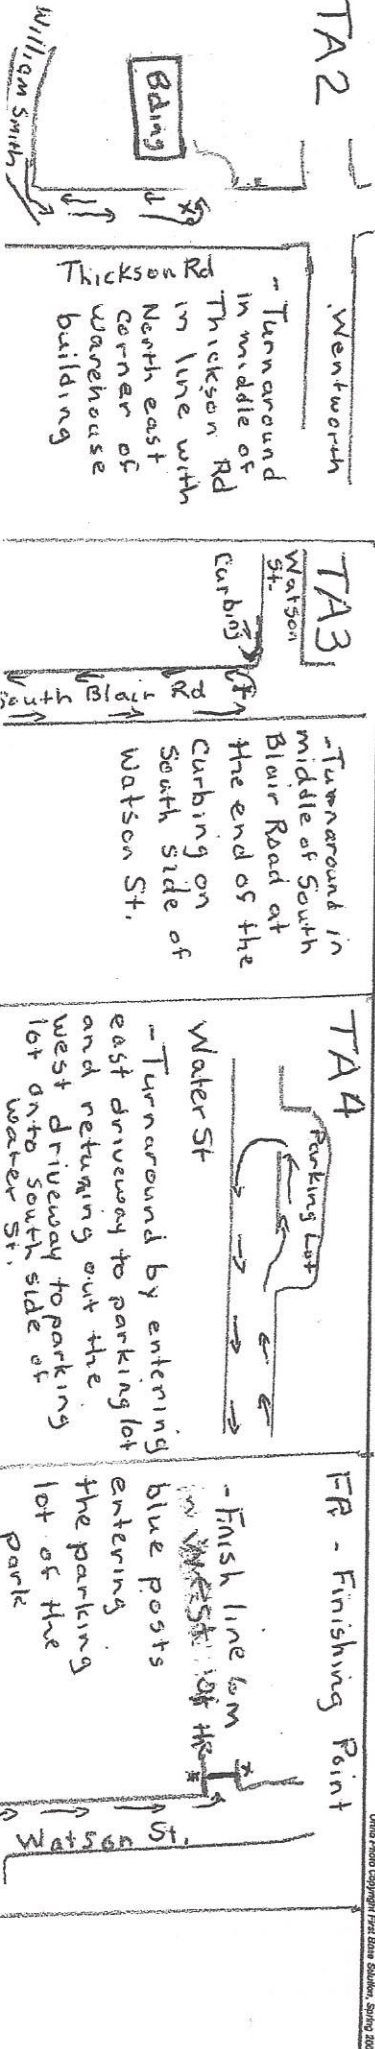 TA2
Wentworth
Bding
William Smith
Thickson Rd
- Turnaround
in middle of
Thickson Rd
in line with
North east
corner of
warehouse
building
TA3
Watson
St.
Curbing
South Blair Rd
- Turnaround in
middle of South
Blair Road at
the end of the
Curbing on
South side of
Watson St.
TA4
Parking Lot
Water St
- Turnaround by entering
east driveway to parking lot
and returing out the
west driveway to parking
lot onto south side of
Water St.
FP - Finishing Point
- Finish line 6m
west of the
blue posts
entering
the parking
lot of the
park
Watson St.
Copyright First Base Solution, Spring